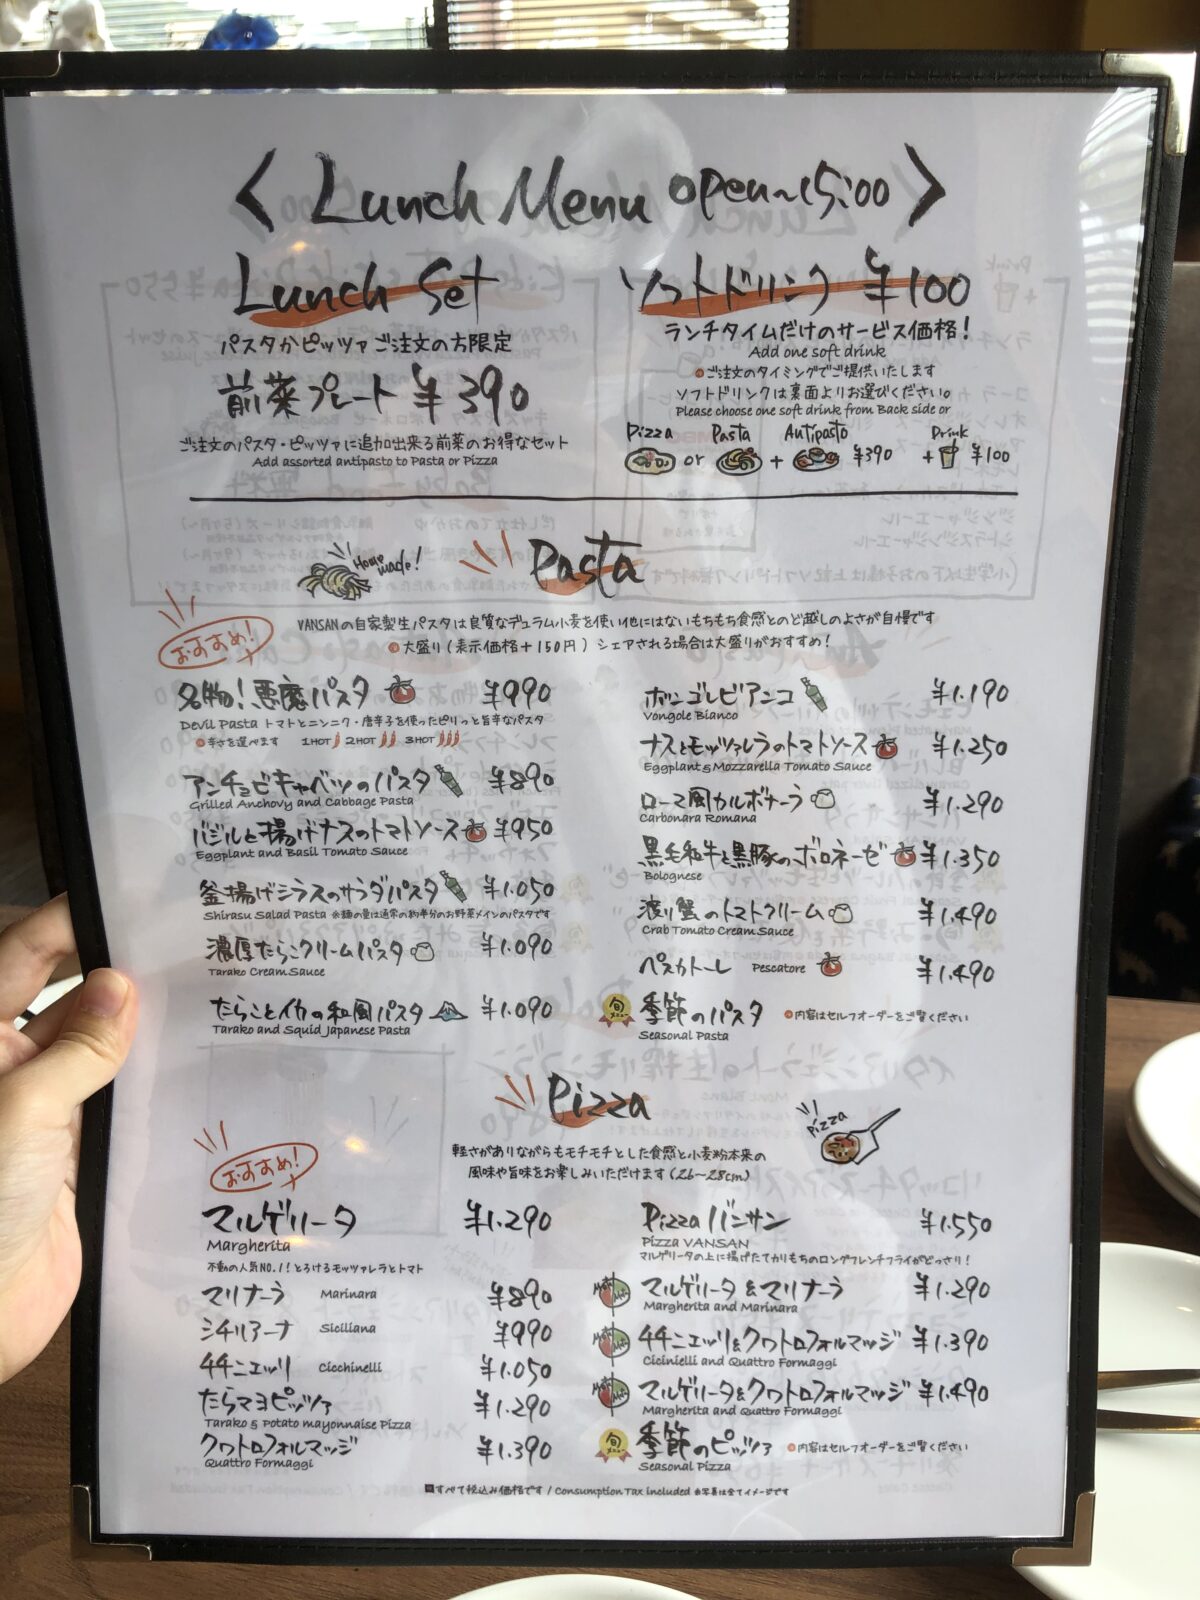 〈 Lunch Menu open~15:00 〉
Lunch Set
パスタかピッツァご注文の方限定
前菜プレート ¥390
ご注文のパスタ・ピッツァに追加出来る前菜のお得なセット
Add assorted antipasto to Pasta or Pizza
ソフトドリンク ¥100
ランチタイムだけのサービス価格！
Add one soft drink
ご注文のタイミングでご提供いたします
ソフトドリンクは裏面よりお選びください。
Please choose one soft drink from Back side or
Pizza Pasta Antipasto Drink
or + ¥390 + ¥100
Home made!
Pasta
おすすめ！
VANSANの自家製生パスタは良質なデュラム小麦を使い他にはないもちもち食感とのど越しのよさが自慢です
大盛り(表示価格+150円) シェアされる場合は大盛りがおすすめ！
名物！悪魔パスタ ¥990
Devil Pasta トマトとニンニク・唐辛子を使ったピリっと旨辛なパスタ
辛さを選べます 1HOT 2HOT 3HOT
アンチョビキャベツのパスタ ¥890
Grilled Anchovy and Cabbage Pasta
バジルと揚げナスのトマトソース ¥950
Eggplant and Basil Tomato Sauce
釜揚げシラスのサラダパスタ ¥1.050
Shirasu Salad Pasta ※麺の量は通常の約半分のお野菜メインのパスタです
濃厚たらこクリームパスタ ¥1.090
Tarako Cream Sauce
たらことイカの和風パスタ ¥1.090
Tarako and Squid Japanese Pasta
ボンゴレビアンコ ¥1.190
Vongole Bianco
ナスとモッツァレラのトマトソース ¥1.250
Eggplant & Mozzarella Tomato Sauce
ローマ風カルボナーラ ¥1.290
Carbonara Romana
黒毛和牛と黒豚のボロネーゼ ¥1.350
Bolognese
渡り蟹のトマトクリーム ¥1.490
Crab Tomato Cream Sauce
ペスカトーレ Pescatore ¥1.490
旬メニュー 季節のパスタ 内容はセルフオーダーをご覧ください
Seasonal Pasta
Pizza
おすすめ！
軽さがありながらもモチモチとした食感と小麦粉本来の
風味や旨味をお楽しみいただけます(26~28cm)
Pizza
マルゲリータ ¥1.290
Margherita
不動の人気NO.1！とろけるモッツァレラとトマト
マリナーラ Marinara ¥890
シチリアーナ Siciliana ¥990
チチニエッリ Cicchinelli ¥1.050
たらマヨピッツァ ¥1.290
Tarako & Potato mayonnaise Pizza
クワトロフォルマッジ ¥1.390
Quattro Formaggi
Pizza バンサン ¥1.550
Pizza VANSAN
マルゲリータの上に揚げたてカリもちのロングフレンチフライがどっさり！
Half Half マルゲリータ&マリナーラ ¥1.290
Margherita and Marinara
Half Half チチニエッリ&クワトロフォルマッジ ¥1.390
Cicinielli and Quattro Formaggi
Half Half マルゲリータ&クワトロフォルマッジ ¥1.490
Margherita and Quattro Formaggi
旬メニュー 季節のピッツァ 内容はセルフオーダーをご覧ください
Seasonal Pizza
すべて税込み価格です / Consumption Tax included ※写真は全てイメージです